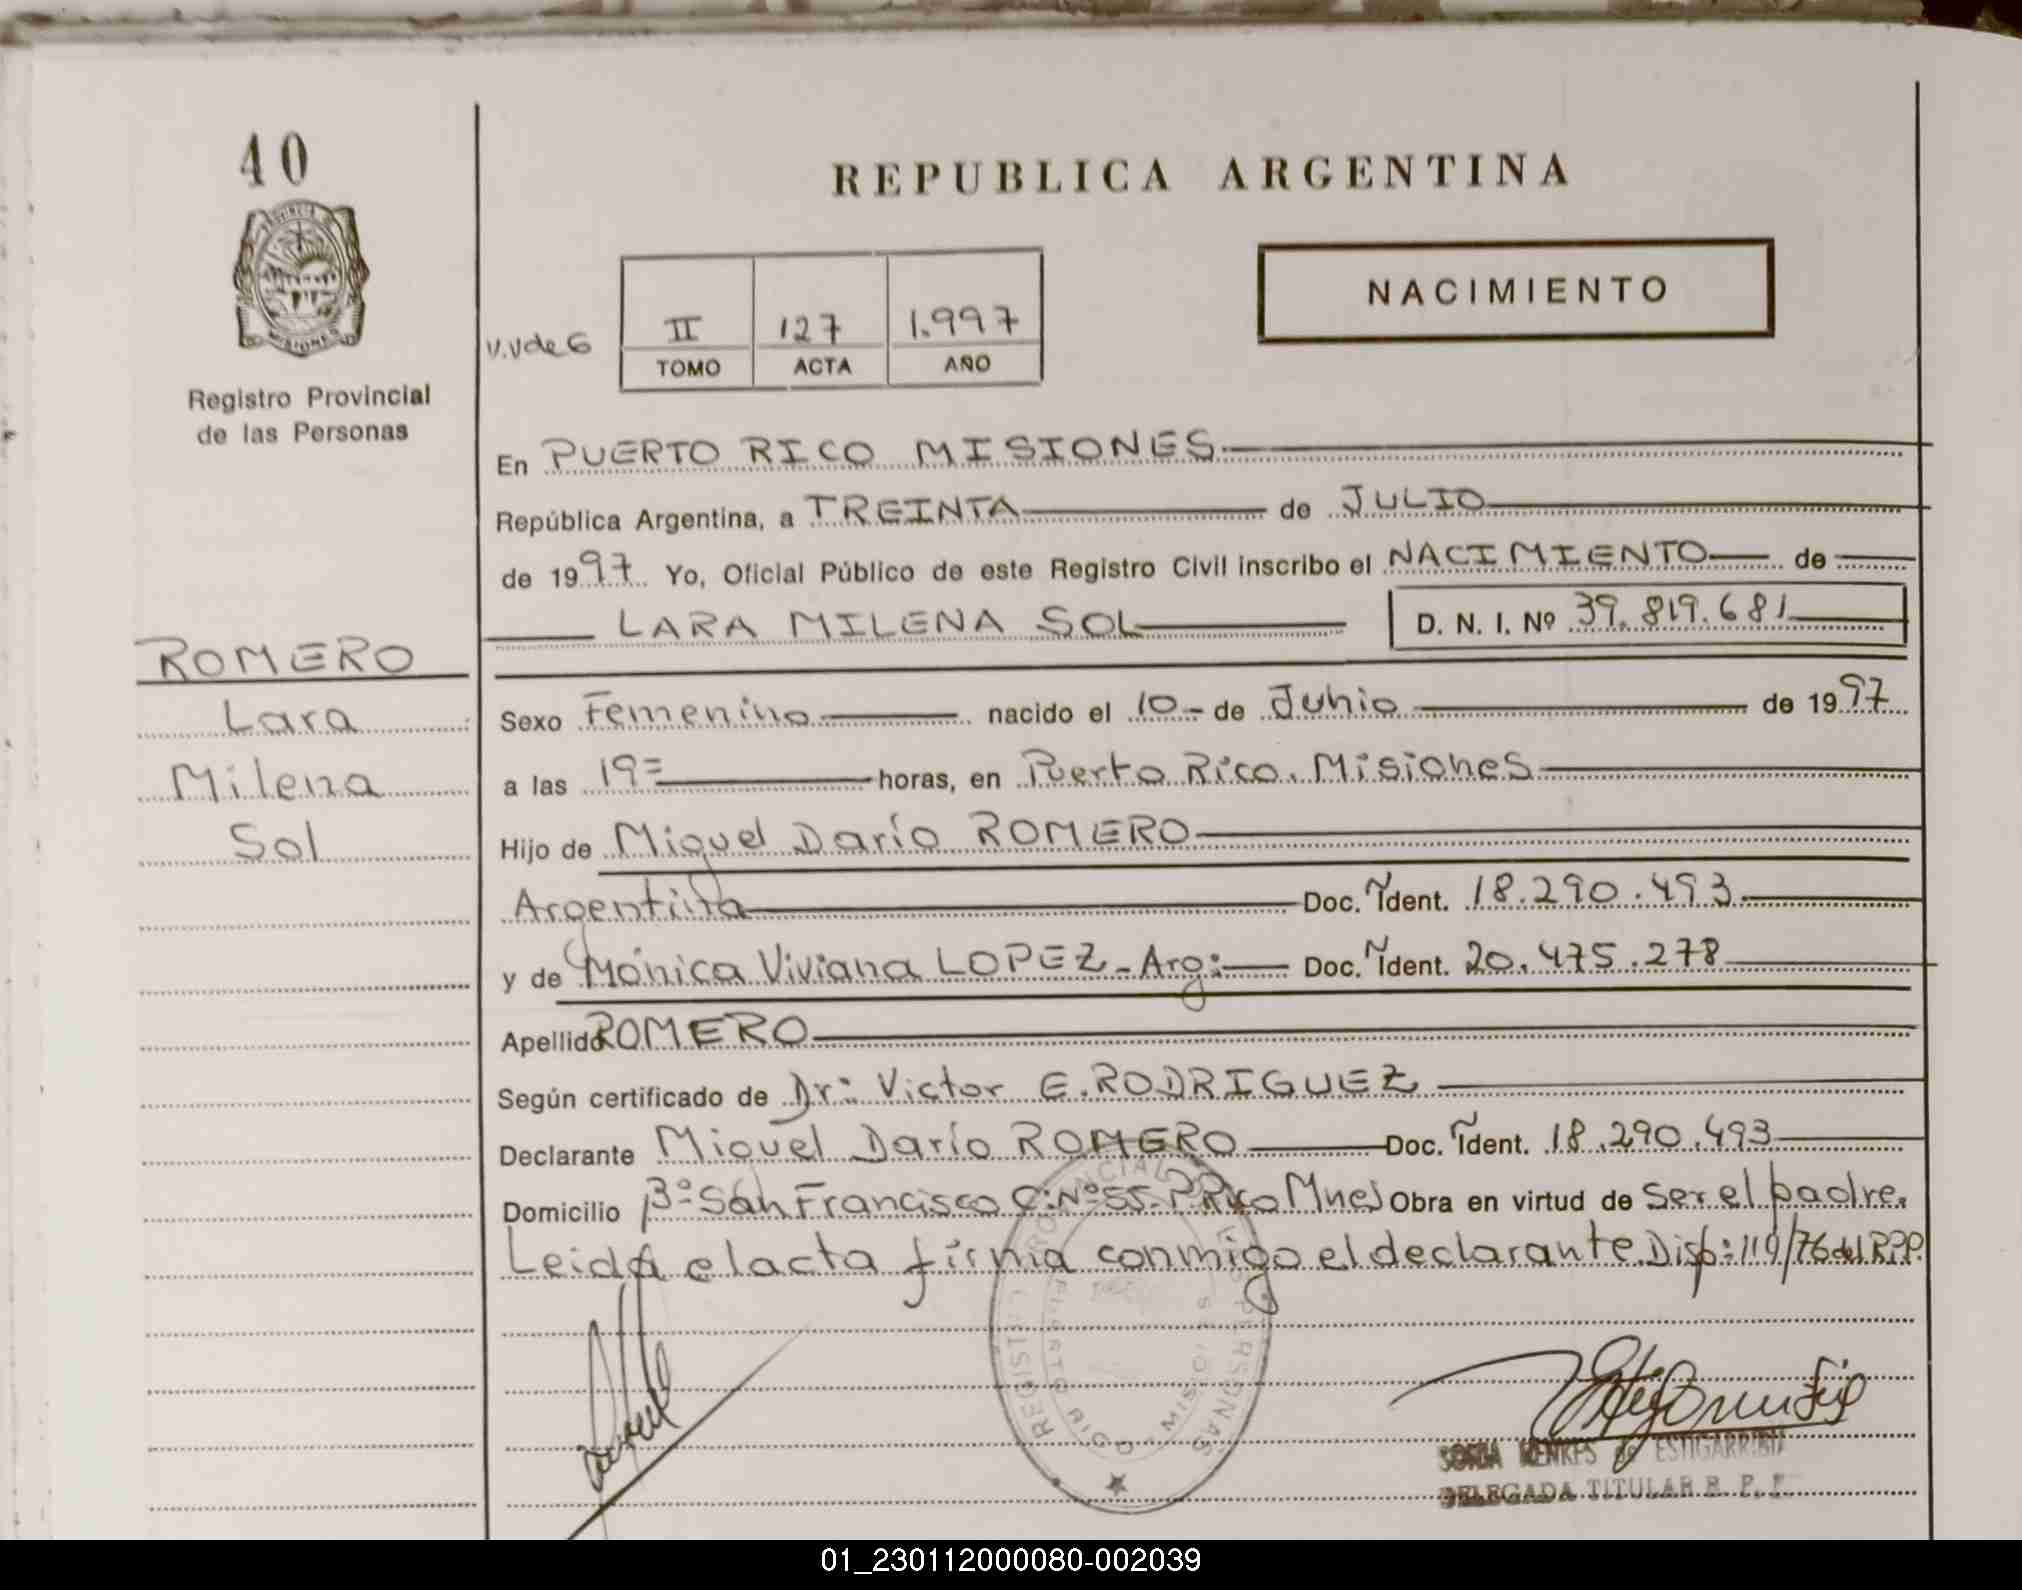 40
REPUBLICA ARGENTINA
NACIMIENTO
MISIONES
Registro Provincial
de las Personas
V.V de 6
II 127 1.997
TOMO ACTA AÑO
En PUERTO RICO MISIONES
República Argentina, a TREINTA de JULIO
de 1997 Yo, Oficial Público de este Registro Civil inscribo el NACIMIENTO de
LARA MILENA SOL D. N. I. Nº 39.819.681
ROMERO
Lara
Milena
Sol
Sexo Femenino nacido el 10 de Junio de 1997
a las 19= horas, en Puerto Rico. Misiones
Hijo de Miguel Darío ROMERO
Argentina Doc. Ident. 18.290.493
y de Mónica Viviana LOPEZ - Arg: Doc. Ident. 20.475.278
Apellido ROMERO
Según certificado de Dr: Victor E. RODRIGUEZ
Declarante Miguel Darío ROMERO Doc. Ident. 18.290.493
Domicilio Bº San Francisco C: Nº 55 - P. Rico Mnes Obra en virtud de ser el padre.
Leida el acta firma conmigo el declarante. Disp: 119/76 del R.P.P.
REGISTRO PROVINCIAL DE LAS PERSONAS
PUERTO RICO - MISIONES
SONIA MENKES de ESTIGARRIBIA
DELEGADA TITULAR R. P. P.
01_230112000080-002039